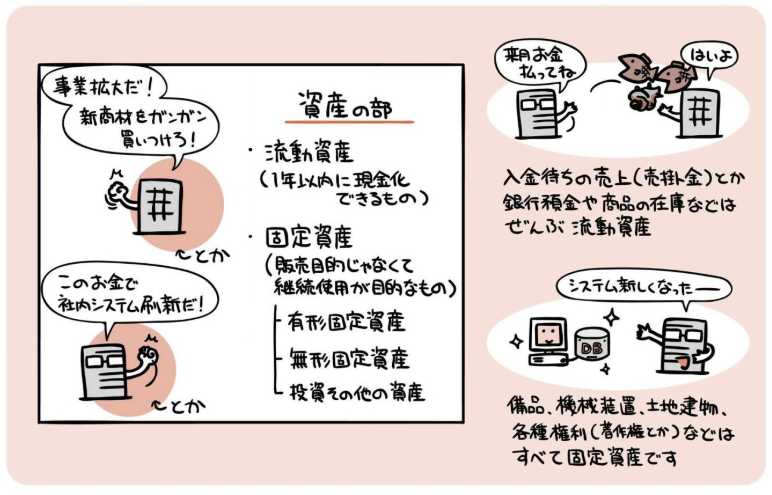 事業拡大だ!
新商材をガンガン
買いつけろ!
とか
このお金で
社内システム刷新だ!
とか
資産の部
・流動資産
(1年以内に現金化
できるもの)
・固定資産
(販売目的じゃなくて
継続使用が目的なもの)
有形固定資産
無形固定資産
投資その他の資産
来月お金
払ってね
はいよ
入金待ちの売上(売掛金)とか
銀行預金や商品の在庫などは
ぜんぶ流動資産
システム新しくなったー
DB
備品、機械装置、土地建物、
各種権利(著作権とか)などは
すべて固定資産です